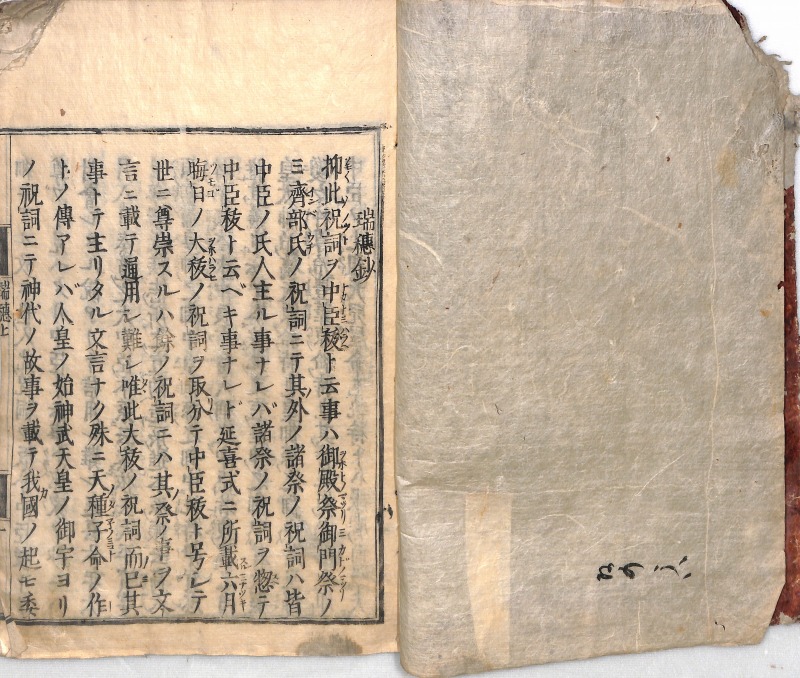 瑞穗鈔
抑此祝詞ヲ中臣秡ト云事ハ御殿祭御門祭ノ
三齊部氏ノ祝詞ニテ其外ノ諸祭ノ祝詞ハ皆
中臣ノ氏人主ル事ナレバ諸祭ノ祝詞ヲ惣テ
中臣秡ト云ベキ事ナレド延喜式ニ所載六月
晦日ノ大秡ノ祝詞ヲ取分テ中臣秡ト号シテ
世ニ尊崇スルハ餘ノ祝詞ニハ其祭ノ事ヲ文
言ニ載テ通用シ難シ唯此大秡ノ祝詞而已其
事トテ主リタル文言ナク殊ニ天種子命ノ作
トノ傳アレバ人皇ノ始神武天皇ノ御宇ヨリ
ノ祝詞ニテ神代ノ故事ヲ載テ我國ノ起七委
瑞穗上